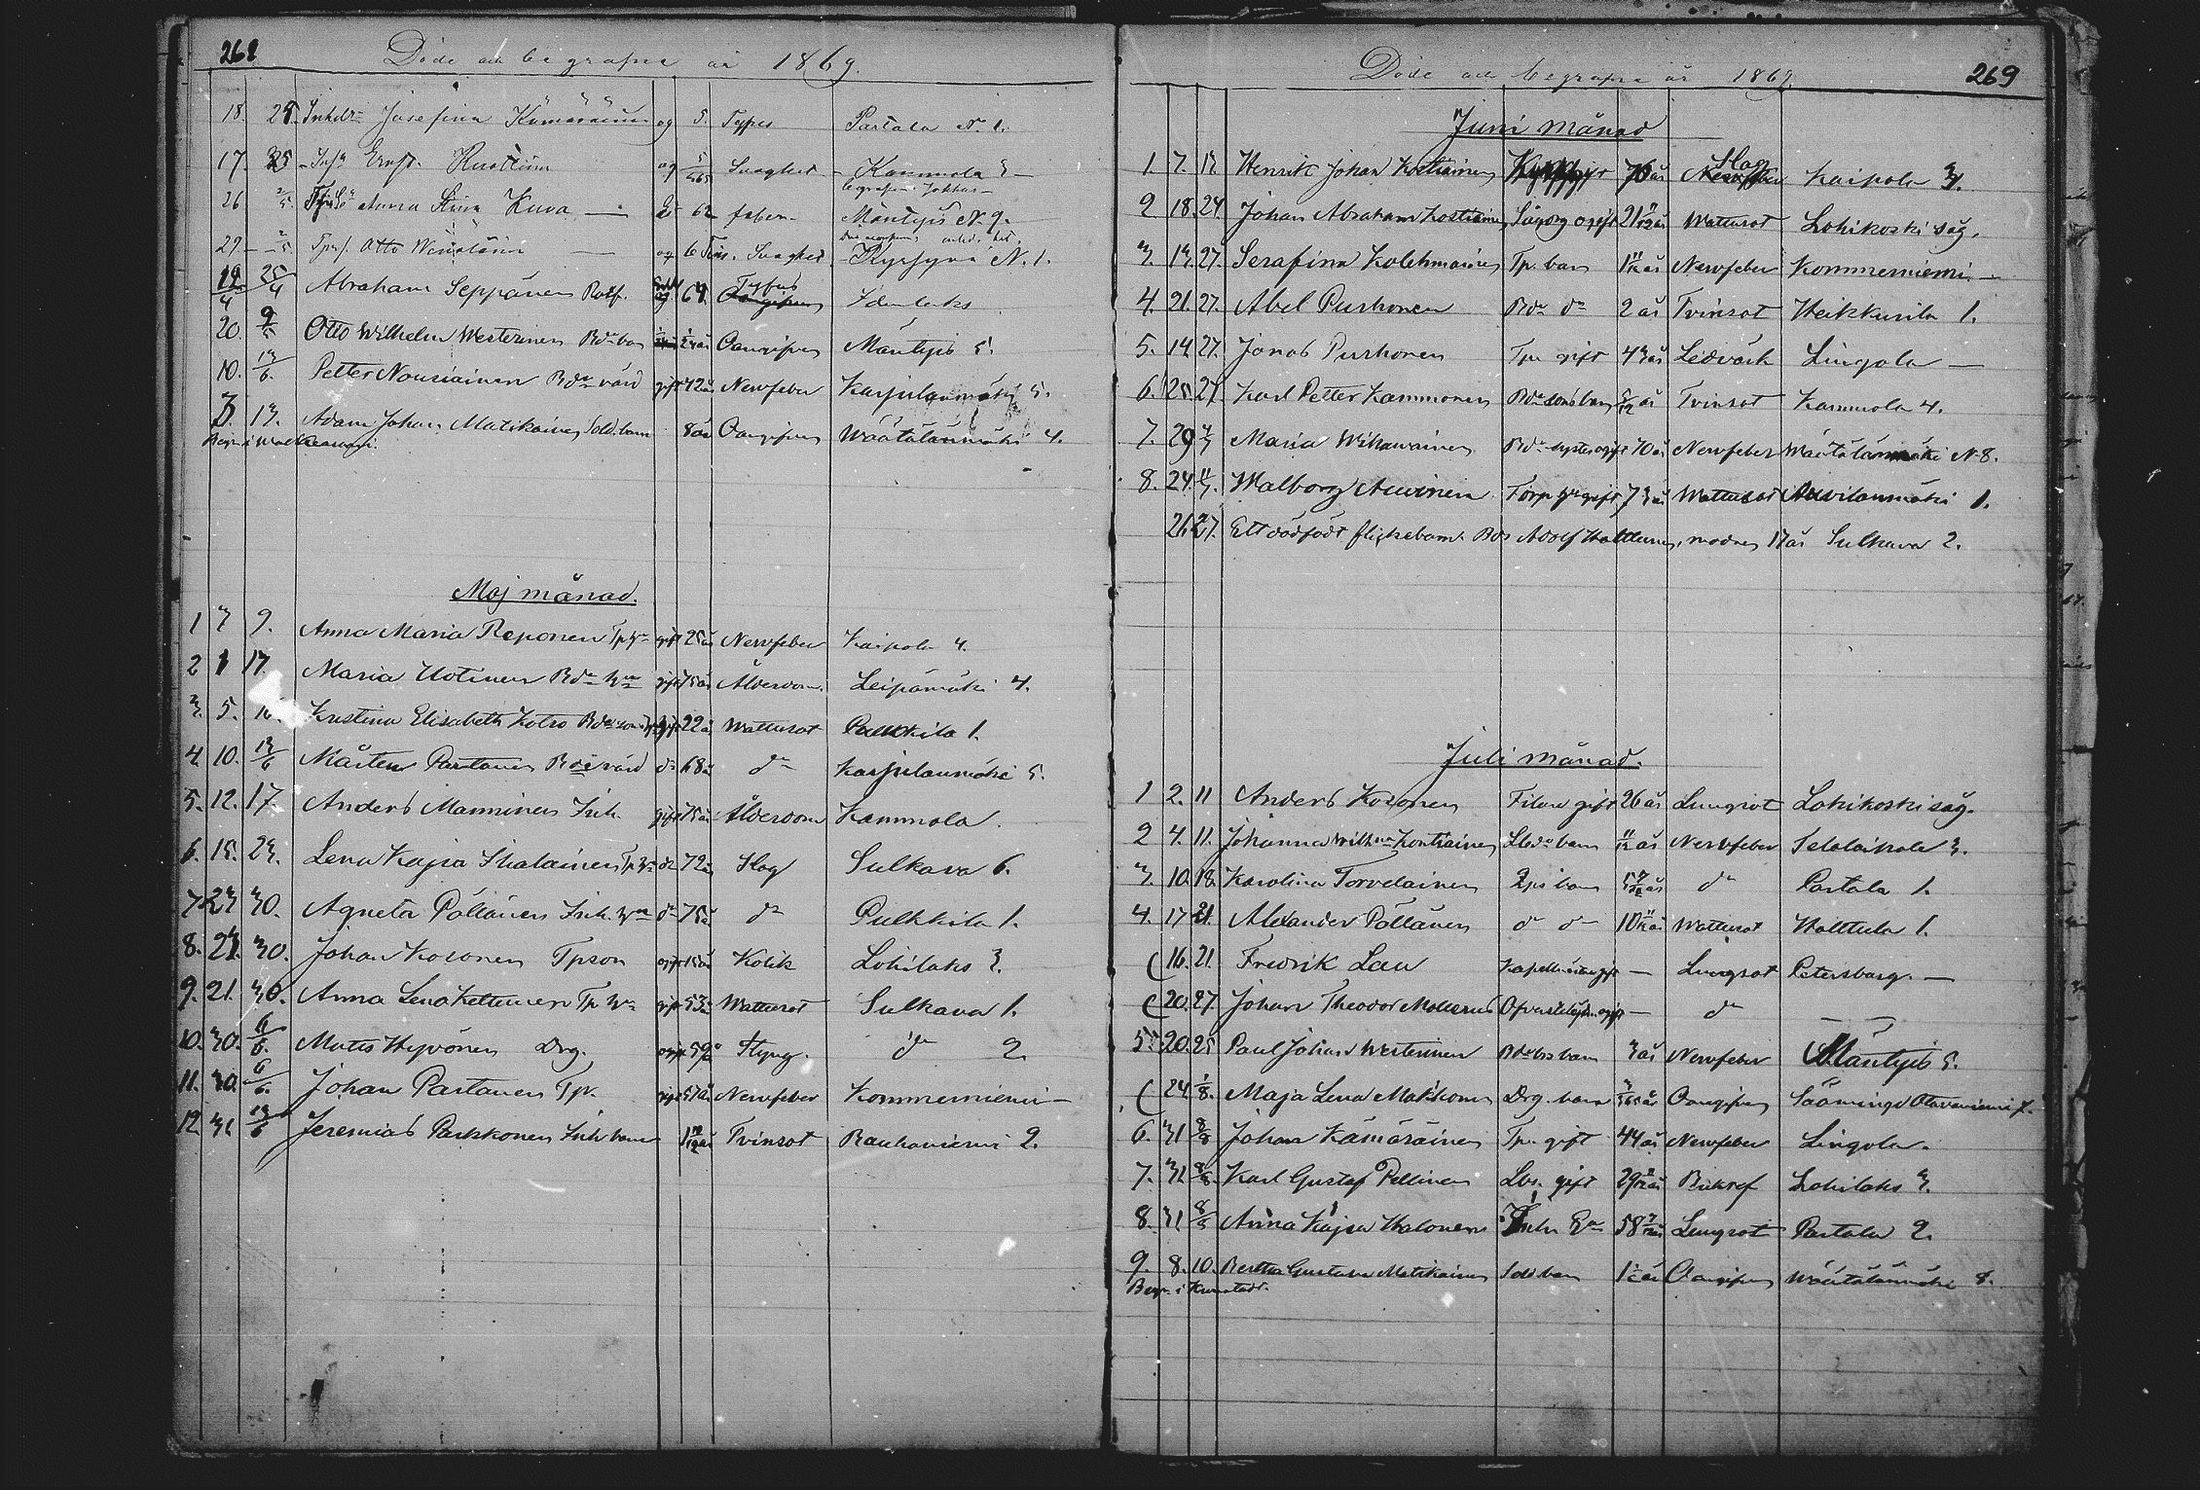 268
Döde och begrafne år 1869.
18. 28. Josefina Kämäräinen og 5. Typus Partala N. 1.
17. 25 Ernst og 5/365 Svaghet Kammola 5
26 2/5. Anna Stina Kuva 62 feber Mäntyis N. 9.
29 2/5 Otto og Svaghet N. 1.
19/4 25/4 Abraham Seppänen Rotf. 64. Typus Idenlaks
20. 9/5 Otto Wilhelm Westerinen Bdebarn Oangifven Mäntyis 5.
10. 13/6. Petter Nousiainen Bde vård gift 42 år Nervfeber Karjulanmäki 5.
3. 13. Adam Johan Matikainen Sold. barn 8 år Oangifven Wäätälänmäki 4.
Maj månad.
1 3 9. Anna Maria Reponen Tp hru gift 25 år Nervfeber Kaipola 4.
2 1 17. Maria Uotinen Bde hru gift 75 år Ålderdom Leipämäki 4.
3. 5. 16. Kristina Elisabeth Kotro 22 år Wattusot Pulkkila 1.
4 10. 13/6 Mårten Partanen Bde vård do 68 år do Karjulanmäki 5.
5. 12. 17. Anders Manninen Inh. gift 75 år Ålderdom Kammola.
6. 15. 23. Lena Kajsa Ihalainen Tp hru do 72 år Slag Sulkava 6.
7 23 30. Agneta Pöllänen Inh. hru do 75 år do Pulkkila 1.
8. 23. 30. Johan Kosonen Tpson ogift Kolik Lohilaks 3.
9. 21. 30. Anna Lena Kettunen Tp hru gift 53 år Wattusot Sulkava 1.
10. 30. 6/6. Matts Hyvönen Drg. ogift 59 år Styng. do 2.
11. 30. 6/6. Johan Partanen Tp. gift 57 år Nervfeber Kommerniemi —
12 31 13/6 Jeremias Parkkonen Inh barn 1 10/12 år Tvinsot Rauhaniemi 2.
Döde och begrafne år 1869.
269
Juni månad
1. 7. 13. Henrik Johan Kostiainen 76 år Slag Kaipola 3.
2 18. 24. Johan Abraham Kostiainen Sågdrg ogift 21 år Wattusot Lohikoski såg.
3. 13. 27. Serafina Kolehmainen Tp. barn 1 år Nervfeber Kommerniemi —
4. 21. 27. Abel Purhonen Bde do 2 år Tvinsot Heikkurila 1.
5. 14. 27. Jonas Purhonen Tp. gift 43 år Ledvärk Lingola —
6. 25. 27. Karl Petter Kammonen Bde sons barn Tvinsot Kammola 4.
7. 29 4/7 Maria Wihavainen Bde syster ogift 70 år Nervfeber Wäätälänmäki N 8.
8. 24. 11/7. Walborg Auvinen Torp hru gift 73 år Wattusot Auvilanmäki 1.
26. 27. Ett dödfödt flickebarn. Bde Adolf Halttunen, modren 17 år Sulkava 2.
Juli månad.
1 2. 11 Anders Kosonen Filare gift 26 år Lungsot Lohikoski såg.
2 4. 11. Johanna Wilhma Kontiainen barn 11/12 år Nervfeber Telataipale 3.
3. 10. 18. Karolina Torvelainen barn do Partala 1.
4. 17 21. Alexander Pöllänen do do 10 år Wattusot Halttula 1.
( 16. 21. Fredrik Lau Kapellmästare gift — Lungsot Petersburg. —
( 20. 27. Johan Theodor Molerus Öfverstelöjtn. ogift — do
5. 20. 25 Paul Johan Westerinen barn 3 år Nervfeber Mäntyis 5.
( 24 1/8. Maja Lena Makkonen Drg. barn Oangifven Säämingi Otavaniemi 7.
6. 31 8/8 Johan Kämäräinen Tp. gift 44 år Nervfeber Lingola.
7. 31 8/8. Karl Gustaf Pellinen Lbs. gift 29 år Lohilaks 3.
8. 31 8/8 Anna Kajsa Halonen Inh: 58 år Lungsot Partala 2.
9. 8. 10. Bertha Gustava Matikainen Sold barn 1 år Oangifven Wäätälänmäki 8.